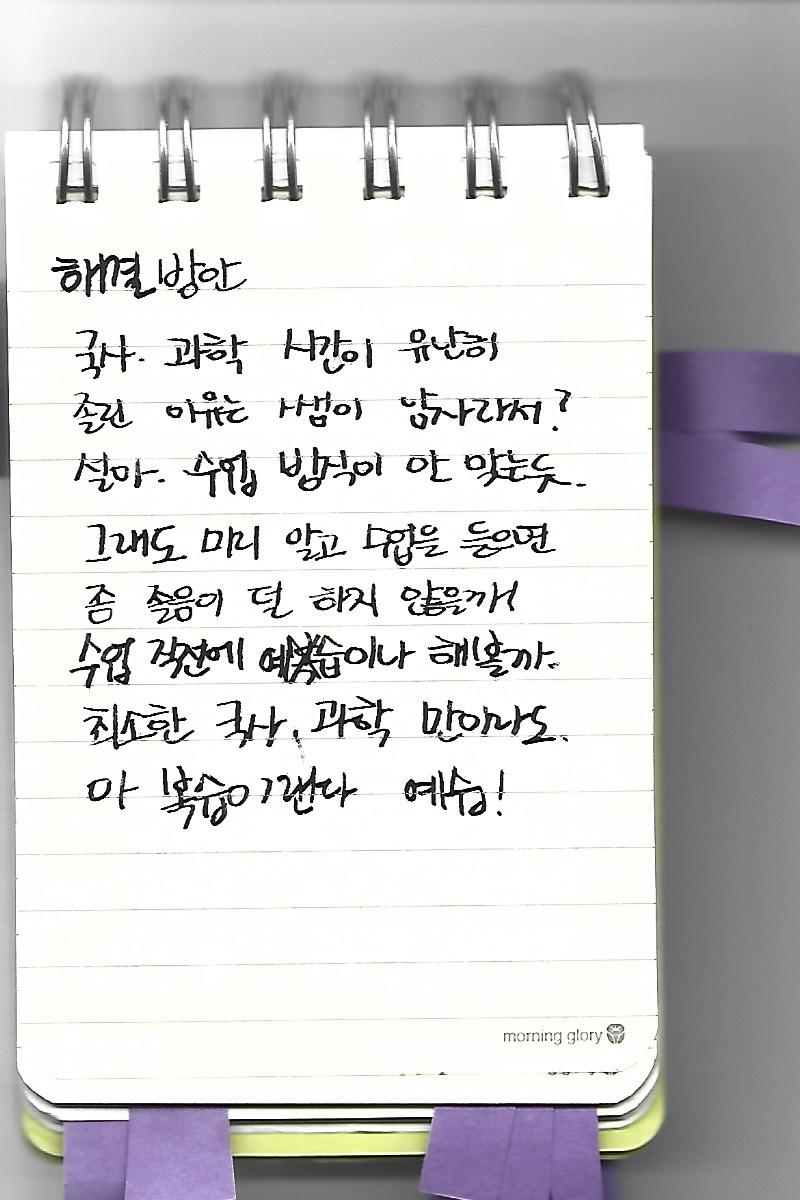 해결방안
국사. 과학 시간이 유난히
졸린 이유는 쌤이 남자라서?
설마. 수업 방식이 안 맞는듯.
그래도 미리 알고 수업을 들으면
좀 졸음이 덜 하지 않을까!
수업 직전에 예습이나 해볼까.
최소한 국사, 과학 만이라도.
아 복습이랜다 예습!
morning glory